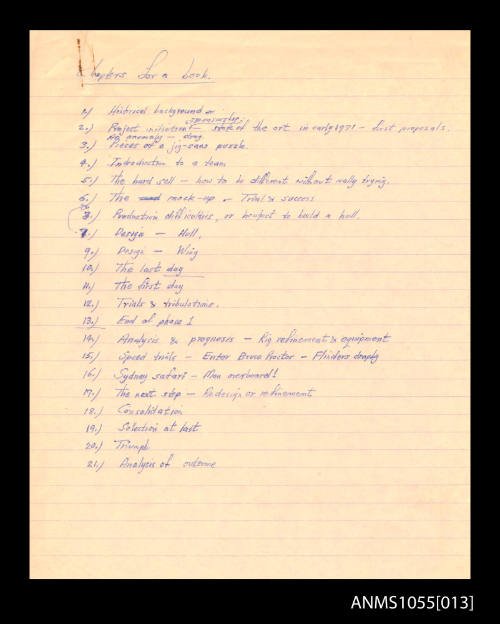 Chapters for a book.
1.) Historical background or
sponsorship
2.) Project initiation – state of the art in early 1971 – first proposals.
anomaly – drag
3.) Pieces of a jig-saw puzzle.
4.) Introduction to a team
5.) The hard sell – how to be different without really trying.
6.) The mock-up – Trial & success
8.) Production difficulties, or to build a hull.
7.) Design – Hull.
9.) Design – Wing
10.) The last day
11.) The first day
12.) Trials & tribulations.
13.) End of phase 1
14.) Analysis & prognosis – Rig refinement & equipment
15.) Speed trials – Enter Bruce Proctor – Flinders
16.) Sydney safari – Man overboard!
17.) The next step – Redesign or refinement
18.) Consolidation
19.) Selection at last
20.) Triumph
21.) Analysis of outcome
ANMS1055[013]